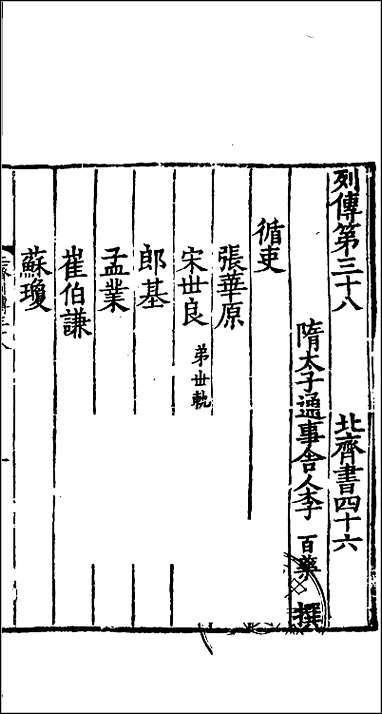 列傳第三十八 北齊書四十六
隋太子通事舍人李 百藥 撰
循吏
張華原
宋世良 弟世軌
郎基
孟業
崔伯謙
蘇瓊